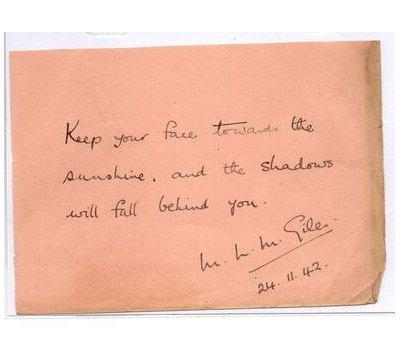 Keep your face towards the
sunshine, and the shadows
will fall behind you.
M. L. M. Giles.
24.11.42.